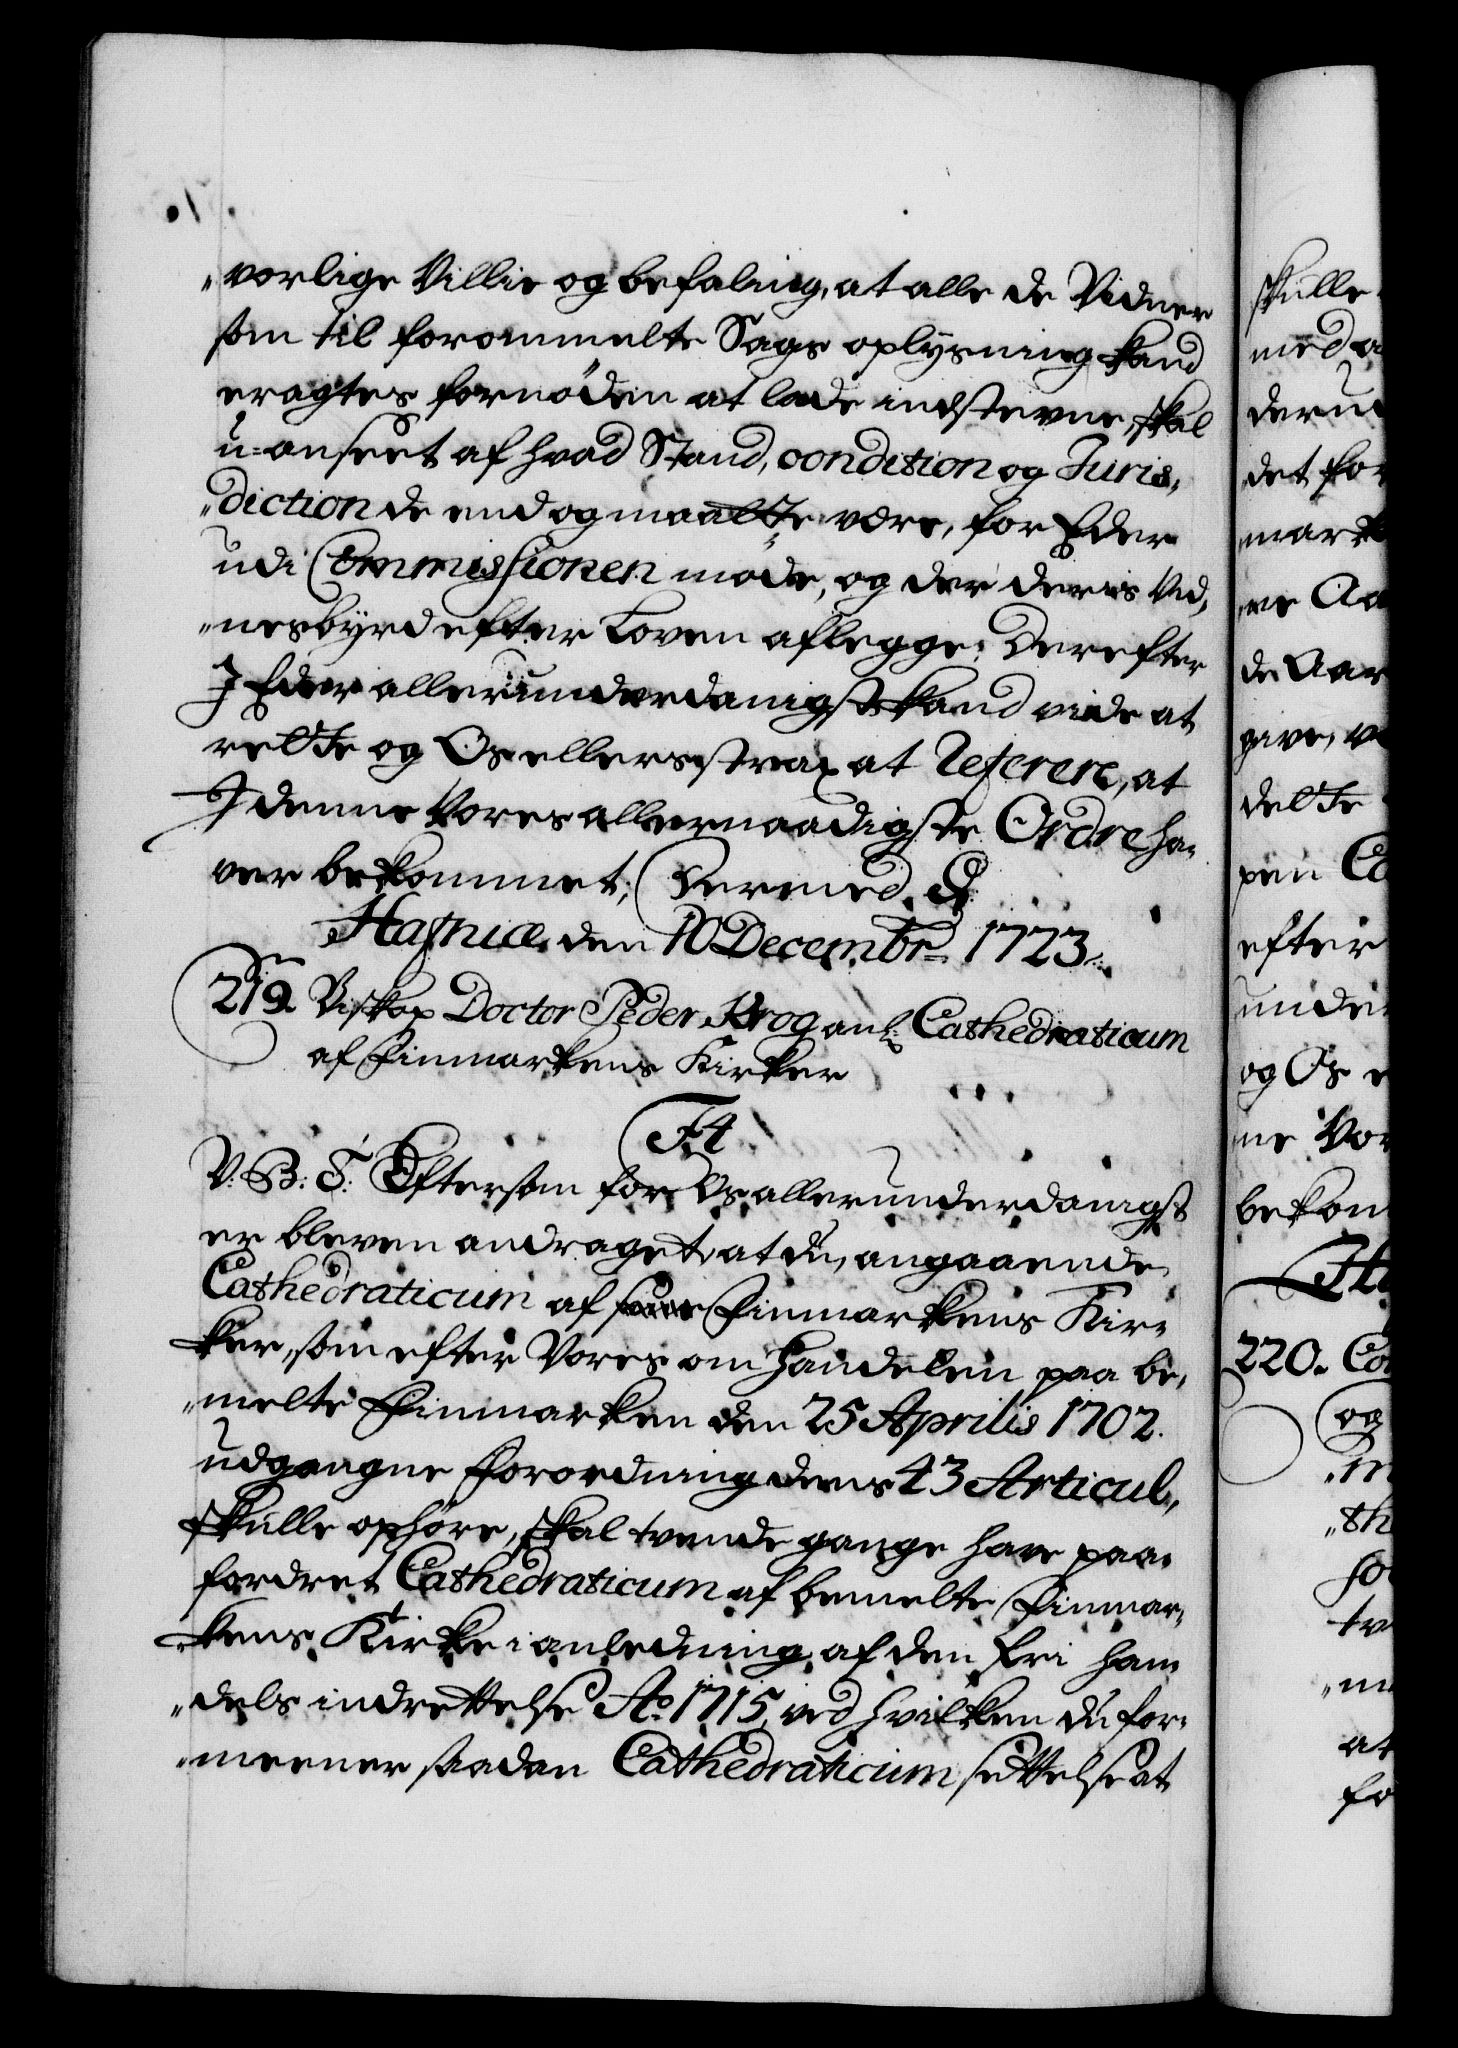 „vorlige Villie og befaling, at alle de Vidner
som til forommelte Sags oplysning kand
eragtes fornöden at lade indstevne, skal
u-anseet af hvad Stand, condition og Juris,
„diction de end og maatte være, for Eder
udi Commissionen möde, og der deris Vid,
„nesbyrd efter Loven aflegge; Derefter
I Eder allerunderdanigst kand vide at
rette og Os ellers strax at Referere, at
I denne Vores allernaadigste Ordre ha-
ver bekommet; Dermed &
Hafniæ den 10 Decembr= 1723.
219. Biskop Doctor Peder Krog anl: Cathedraticum
af Finmarkens Kirker
F4
V: B: T: Eftersom for Os allerunderdanigst
er bleven andraget, at du, angaaende
Cathedraticum af Finmarkens Kir-
ker, som efter Vores om Handelen paa be,
„melte Finmarken den 25 Aprilis 1702.
udgangne Forordnings dens 43 Articul,
skulle ophöre, skal tvende gange have paa-
fordret Cathedraticum af bemelte Finmar,
„kens Kirke i anledning af den fri han
„dels indrettelse Ao 1715, ved hvilken du for-
„meener saadan Cathedraticum settelse at
skulle
med a
deru
det for
mark
ve Aa
de Aar
give, v
dette
pen Co
efter
under
og Os e
ne Vor
bekom
H
220. Co
og
„m
„th
so
tv
„m
at
fo